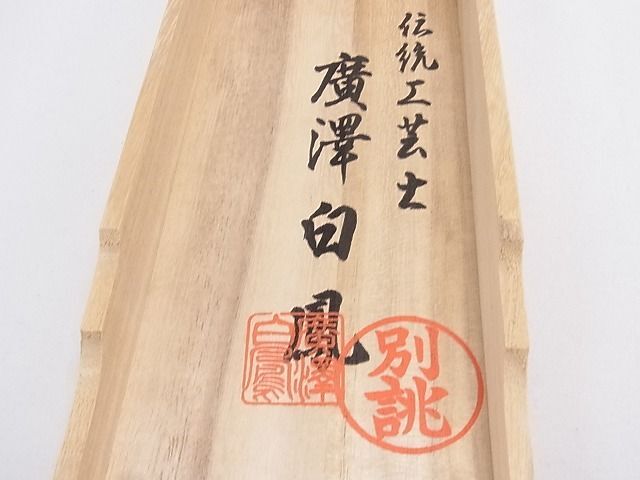 伝統工芸士
廣澤白鳳
廣澤
別誂